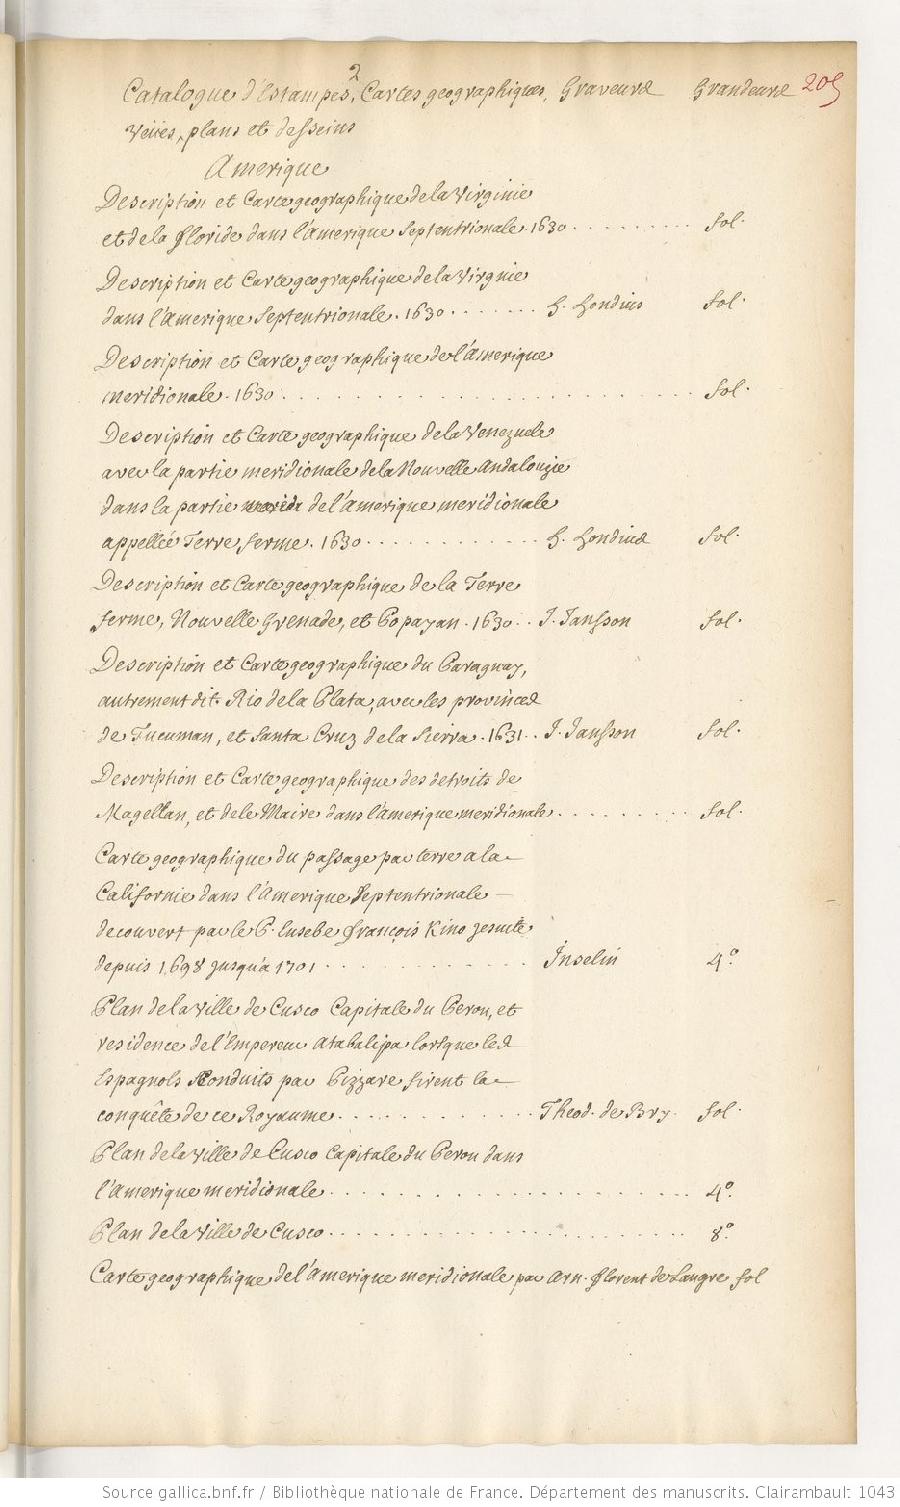 2
Catalogue d'Estampes, Cartes geographiques, Graveurs Grandeurs 205
Veües, plans et desseins
Amerique
Description et Carte geographique de la Virginie
et de la Floride dans l'Amerique Septentrionale. 1630 . . . . . . . . . fol.
Description et Carte geographique de la Virgnie
dans l'Amerique Septentrionale. 1630 . . . . . . . H. Hondius fol.
Description et Carte geographique de l'Amerique
meridionale. 1630 . . . . . . . . . . . . . . . . . . . . . . . fol.
Description et Carte geographique de la Venezuele
avec la partie meridionale de la Nouvelle Andalouzie
dans la partie de l'Amerique meridionale
appellée Terre ferme. 1630 . . . . . . . . . . . . . H. Hondius fol.
Description et Carte geographique de la Terre
ferme, Nouvelle Grenade, et Popayan. 1630 . . J. Jansson fol.
Description et Carte geographique du Paraguay,
autrement dit Rio de la Plata, avec les provinces
de Tucuman, et Santa Cruz de la Sierra. 1631 . . J. Jansson fol.
Description et Carte geographique des detroits de
Magellan, et de le Maire dans l'Amerique meridionale . . . . . . . . . fol.
Carte geographique du passage par terre a la
Californie dans l'Amerique Septentrionale
decouvert par le P. Eusebe François Kino Jesuite
depuis 1698 jusqu'a 1701 . . . . . . . . . . . . Inselin 4°.
Plan de la Ville de Cusco Capitale du Perou, et
residence de l'Empereur Atabalipa lorsque les
Espagnols conduits par Pizzare firent la
conquête de ce Royaume . . . . . . . . . . . . . Theod. de Bry. fol.
Plan de la Ville de Cusco Capitale du Perou dans
l'Amerique meridionale . . . . . . . . . . . . . . . . . . . . . . 4°.
Plan de la Ville de Cusco . . . . . . . . . . . . . . . . . . . . . . 8°.
Carte geographique de l'Amerique meridionale par Arn. Florent de Langre fol
Source gallica.bnf.fr / Bibliothèque nationale de France. Département des manuscrits. Clairambault 1043